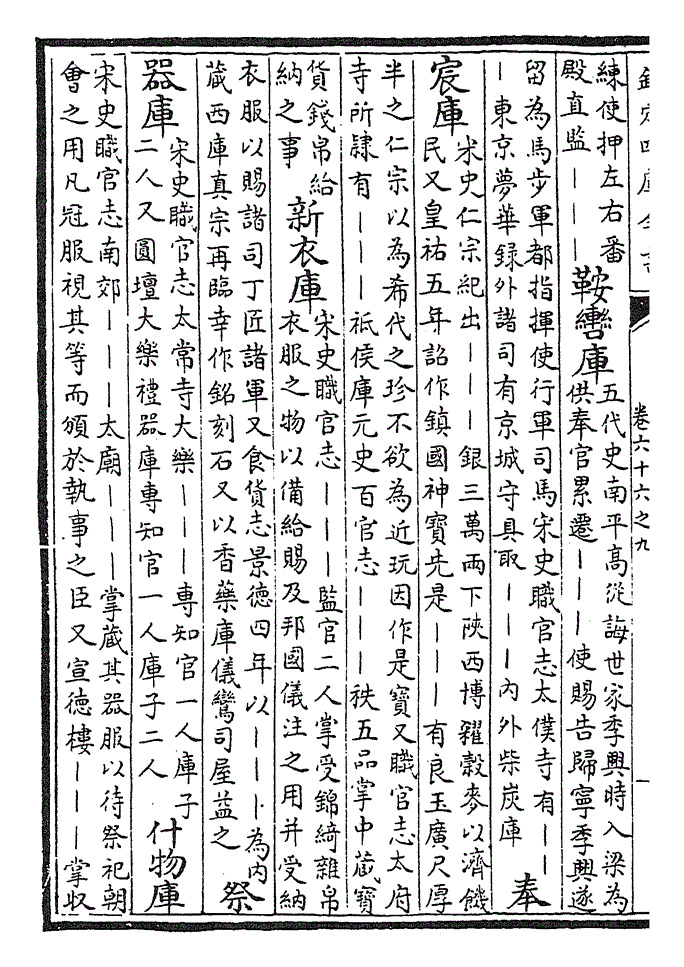 欽定四庫全書
卷六十六之九
練使押左右番
殿直監｜｜
鞍轡庫
五代史南平髙從誨世家季興時入梁為
供奉官累遷｜｜｜使賜告歸寧季興遂
留為馬步軍都指揮使行軍司馬宋史職官志太僕寺有｜｜
｜東京夢華録外諸司有京城守具取｜｜｜内外柴炭庫
奉
宸庫
宋史仁宗紀出｜｜｜銀三萬兩下陜西博糴穀麥以濟饑
民又皇祐五年詔作鎮國神寳先是｜｜｜有良玉廣尺厚
半之仁宗以為希代之珍不欲為近玩因作是寳又職官志太府
寺所隷有｜｜｜祇侯庫元史百官志｜｜｜秩五品掌中藏寳
貨錢帛給
納之事
新衣庫
宋史職官志｜｜｜監官二人掌受錦綺雜帛
衣服之物以備給賜及邦國儀注之用并受納
衣服以賜諸司丁匠諸軍又食貨志景徳四年以｜｜｜為内
藏西庫真宗再臨幸作銘刻石又以香藥庫儀鸞司屋益之
祭
器庫
宋史職官志太常寺大樂｜｜｜専知官一人庫子
二人又圓壇大樂禮器庫専知官一人庫子二人
什物庫
宋史職官志南郊｜｜｜太廟｜｜｜掌藏其器服以待祭祀朝
會之用凡冠服視其等而頒於執事之臣又宣徳樓｜｜｜掌収